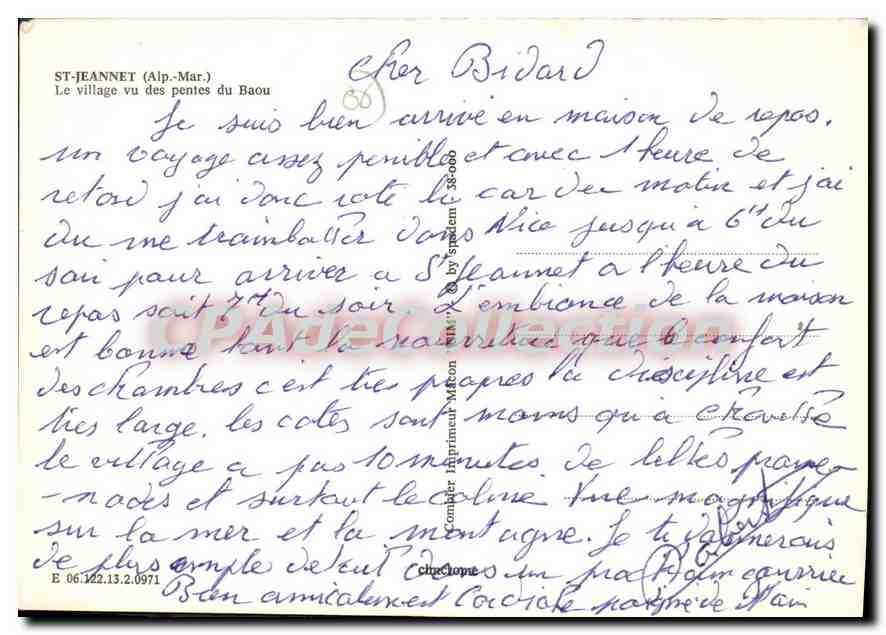 ST-JEANNET (Alp.-Mar.)
Le village vu des pentes du Baou
Cher Bidard
86
Je suis bien arrivé en maison de repos.
un voyage assez penible et avec 1 heure de
retard j'ai donc raté le car du matin et j'ai
du me trimballer dans Nice jusqu'a 6H du
soir pour arriver a St Jeannet a l'heure du
repas soit 7H du soir. L'embiance de la maison
est bonne tant la nourriture que le confort
des chambres c'est tres propres la discipline est
tres large. les cotes sont moins qu'a
le village a pas 10 minutes de belles prome-
-nades et surtout le calme Vue magnifique
sur la mer et la montagne. Je te donnerais
de plus ample detail dans un prochain courrier
Bien amicalement Cordiale poignée de Main
Robert
E 06.122.13.2.0971
Combier Imprimeur Macon "CIM" © by spadem 38-000
cimcrome
CPAdeCollection